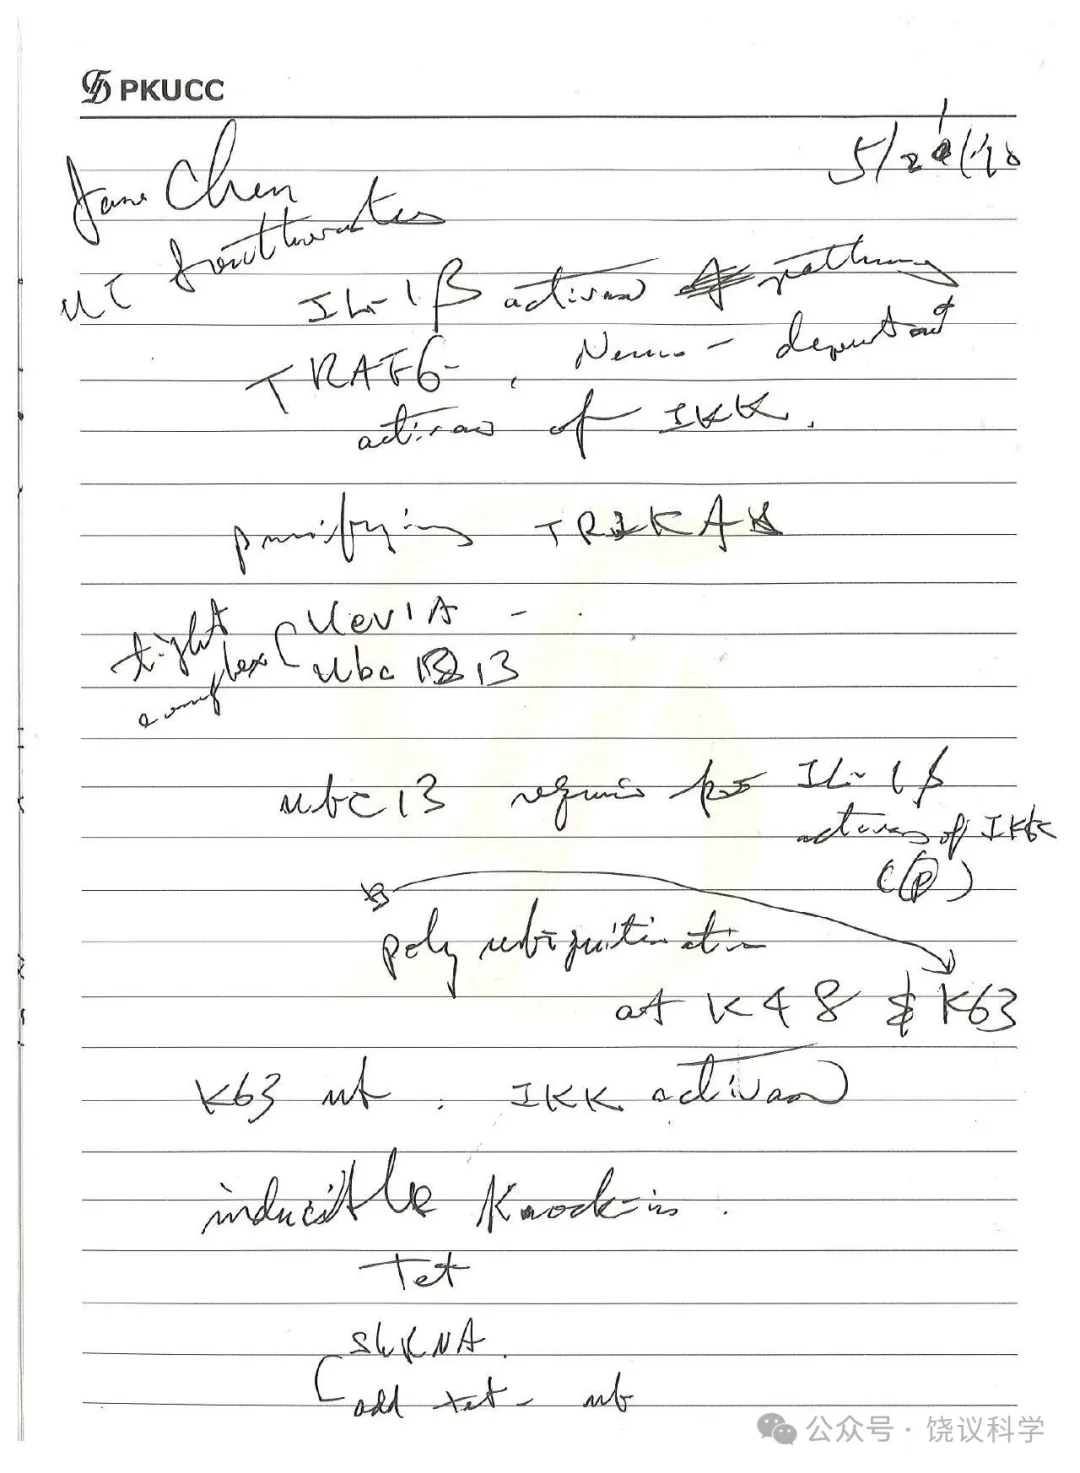 PKUCC
5/21/10
Jane Chen
UT Southwestern
IL-1β activation pathway
TRAF6-, Nemo- dependent
activation of IKK.
purifying TRIKA
tight complex
Uev1A -
Ubc 13
Ubc13 required for IL-1β
activation of IKK
(P)
poly ubiquitination
at K48 & K63
K63 ub . IKK activation
inducible Knock-in.
Tet
ShRNA.
add tet - ub
公众号 · 饶议科学